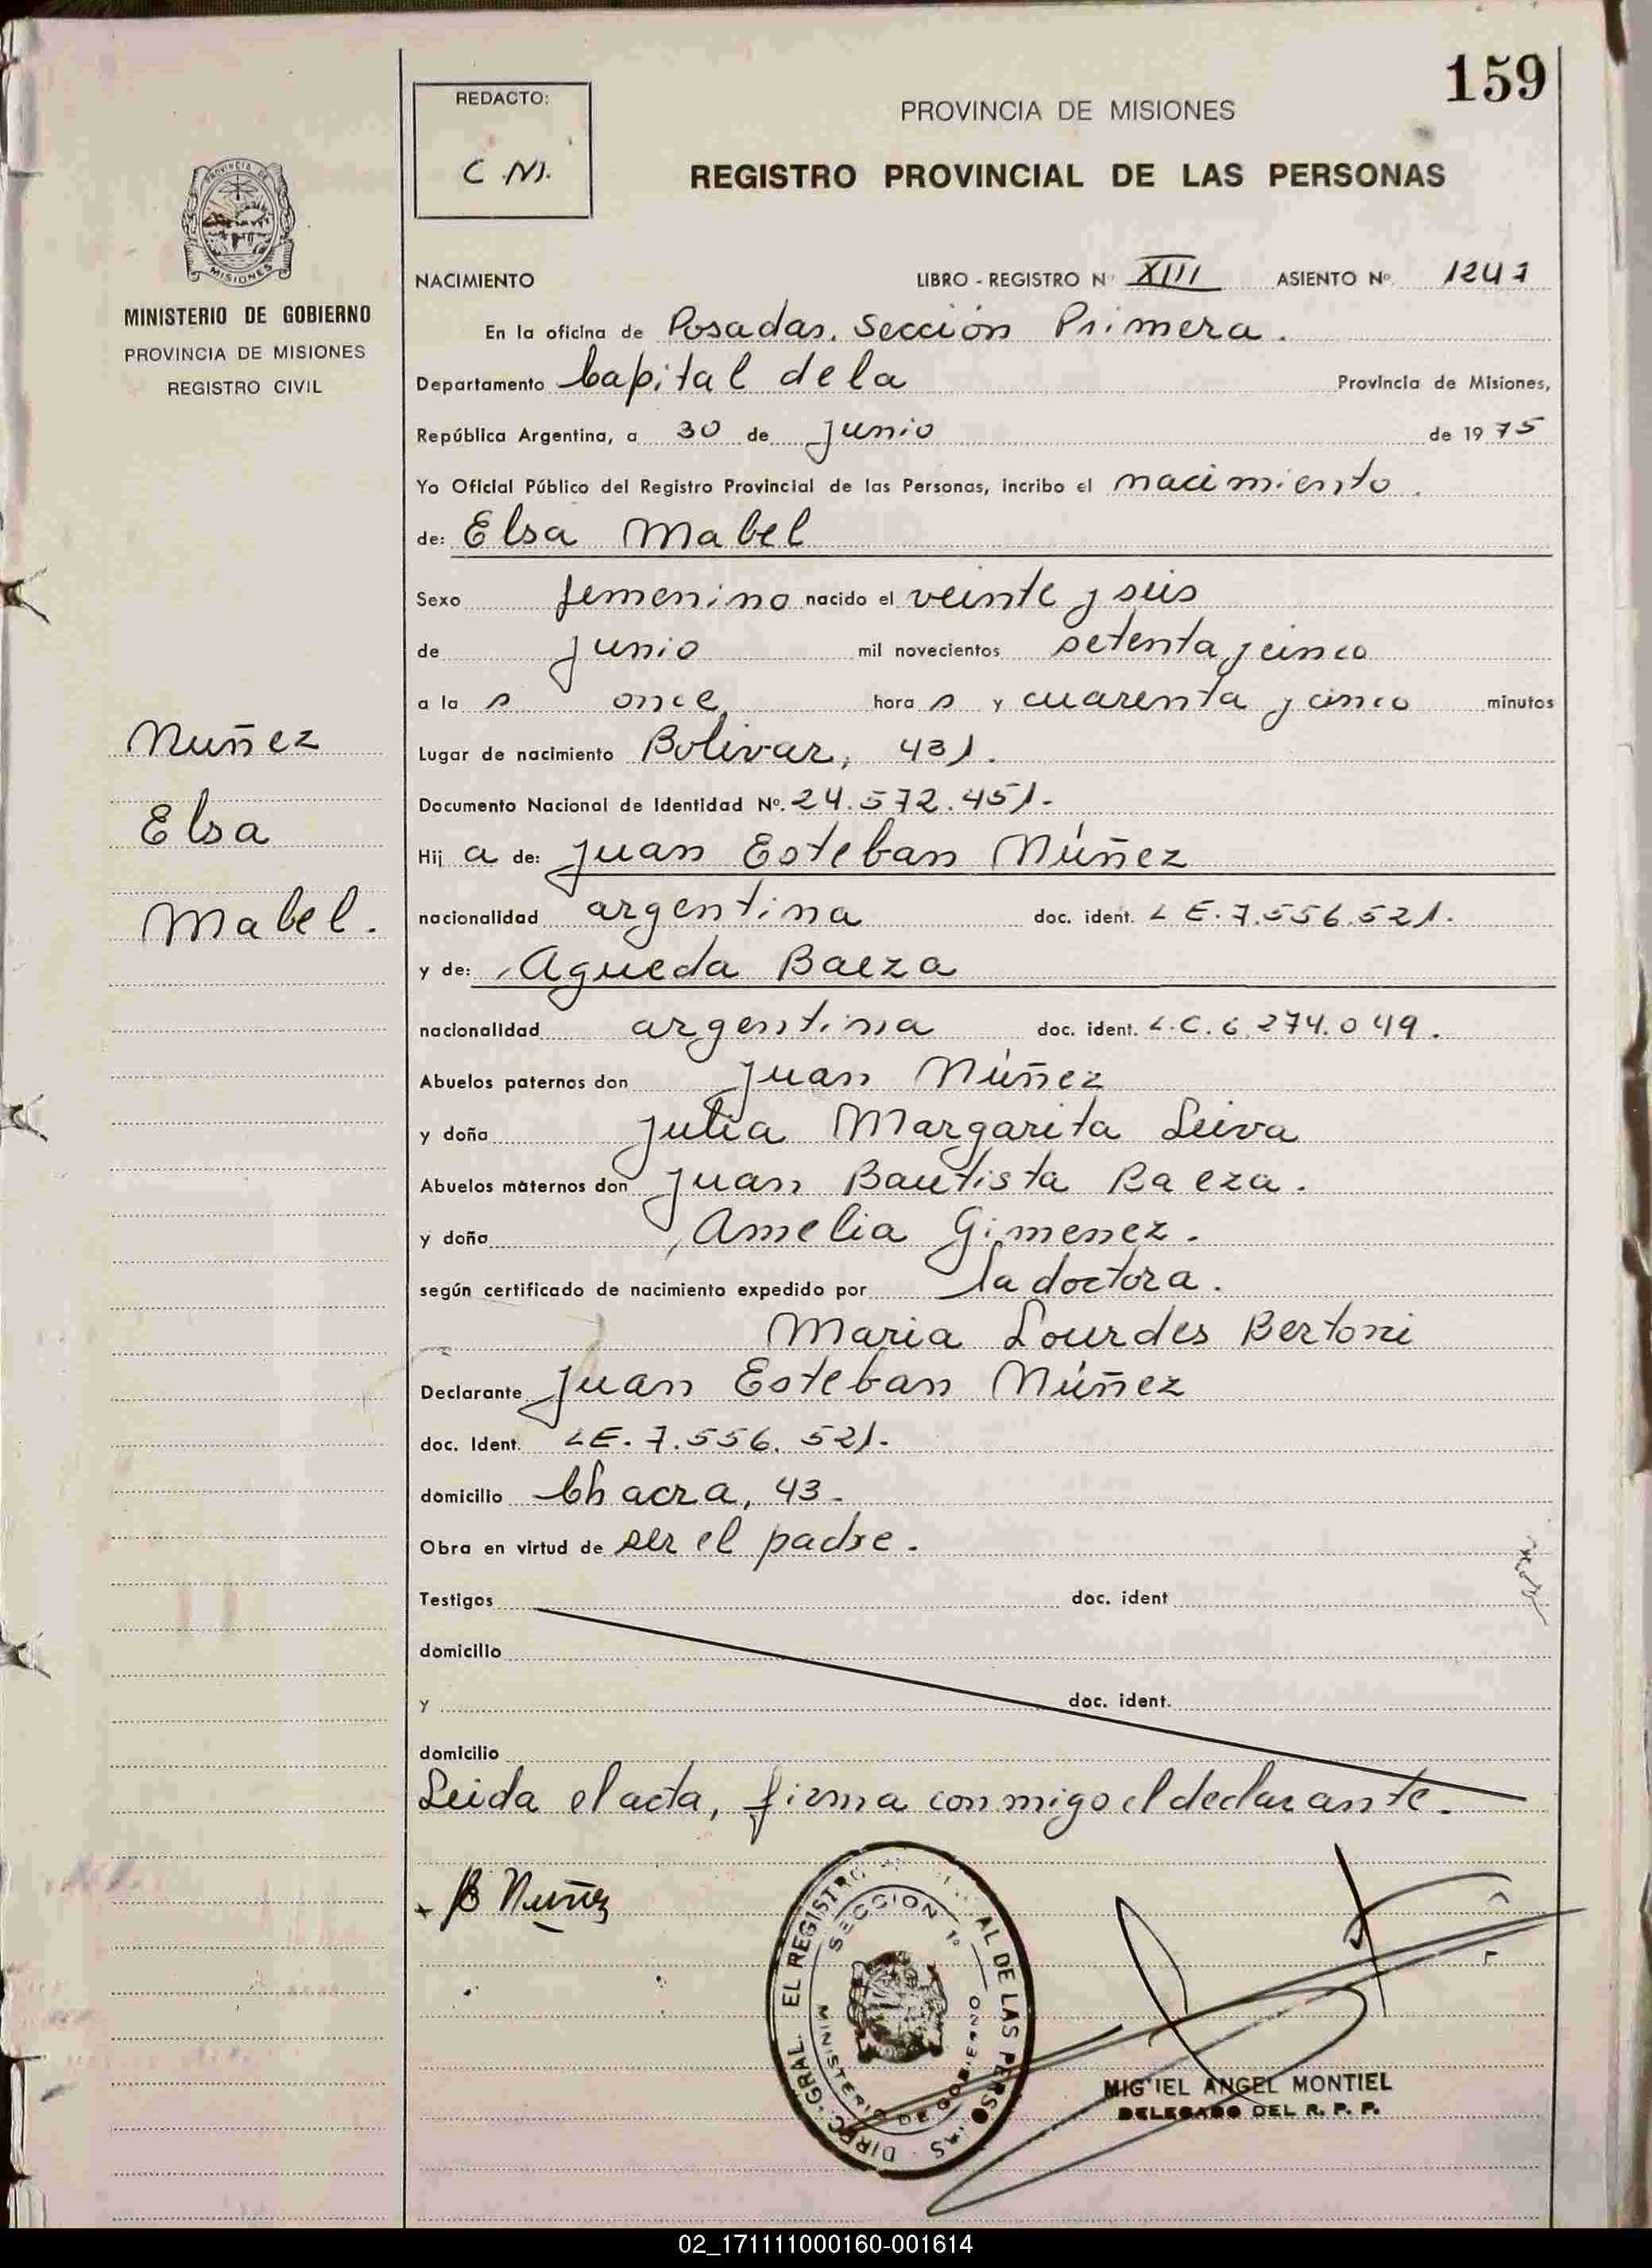 159
REDACTO:
C.N.
PROVINCIA DE MISIONES
REGISTRO PROVINCIAL DE LAS PERSONAS
PROVINCIA DE
MISIONES
MINISTERIO DE GOBIERNO
PROVINCIA DE MISIONES
REGISTRO CIVIL
NACIMIENTO LIBRO - REGISTRO Nº XIII ASIENTO Nº 1241
En la oficina de Posadas. Sección Primera.
Departamento Capital de la Provincia de Misiones,
República Argentina, a 30 de Junio de 1975
Yo Oficial Público del Registro Provincial de las Personas, incribo el nacimiento.
de: Elsa Mabel
Sexo femenino nacido el veinte y seis
de Junio mil novecientos setenta y cinco
a la s once hora s y cuarenta y cinco minutos
Lugar de nacimiento Bolivar, 431.
Documento Nacional de Identidad Nº. 24.572.451.-
Hij a de: Juan Esteban Núñez
nacionalidad argentina doc. ident. L E. 7.556.521.
y de: Agueda Baeza
nacionalidad argentina doc. ident. L.C. 6.274.049.
Abuelos paternos don Juan Núñez
y doña Julia Margarita Leiva
Abuelos maternos don Juan Bautista Baeza.
y doña Amelia Gimenez.
según certificado de nacimiento expedido por la doctora.
Maria Lourdes Bertoni
Declarante Juan Esteban Núñez
doc. Ident. LE. 7.556.521.
domicilio Chacra, 43.
Obra en virtud de ser el padre.
Testigos doc. ident
domicilio
y doc. ident.
domicilio
Leida el acta, firma conmigo el declarante.
Nuñez
Elsa
Mabel.
Nuñez
DIREC. GRAL. EL REGISTRO AL DE LAS PERSO AS
SECCION 1ª
MINISTERIO DE GOBIERNO
MIG IEL ANGEL MONTIEL
DELEGADO DEL R. P. P.
02_171111000160-001614